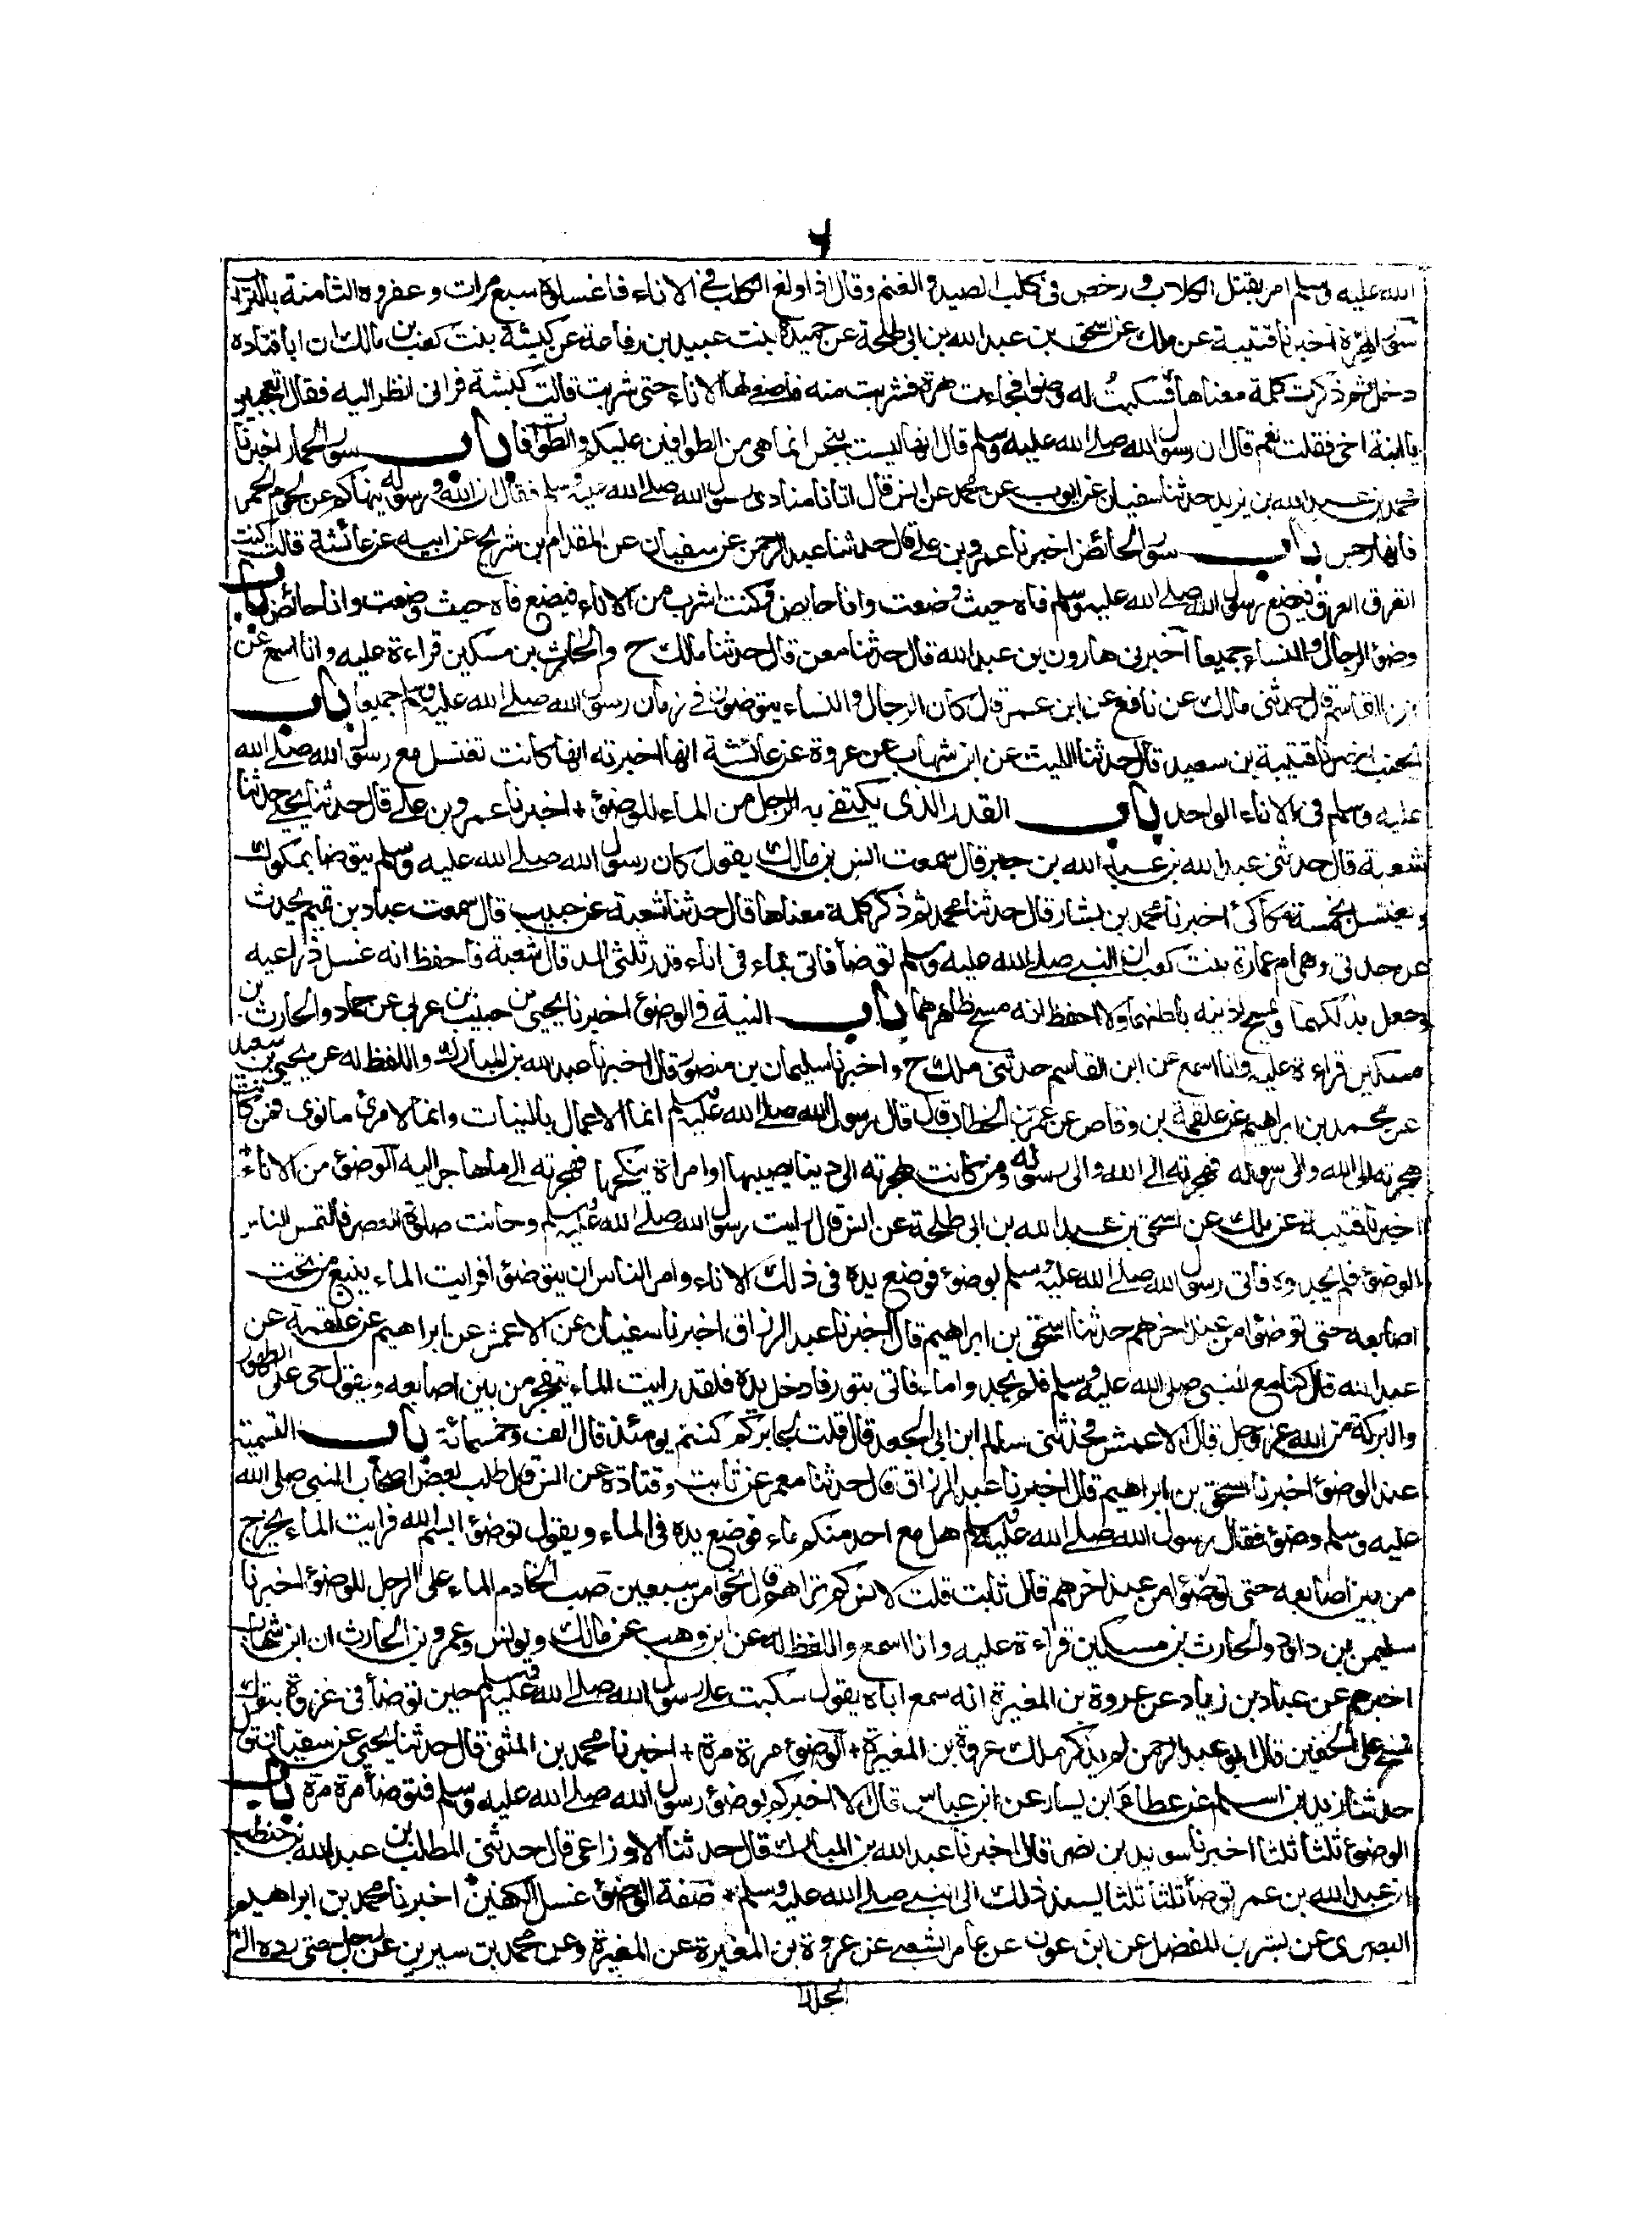 ٦
الله عليه وسلم امر بقتل الكلاب و رخص فى كلب الصيد و الغنم وقال اذا ولغ الكلب فى الاناء فاغسلوه سبع مرات و عفروه الثامنة بالتراب
سؤر الهرة اخبرنا قتيبة عن ملك عن اسحق بن عبد الله بن ابى طلحة عن حميدة بنت عبيد بن رفاعة عن كبشة بنت كعب بن مالك ان ابا قتادة
دخل ثم ذكرت كلمة معناها فسكبت له وضوا فجاءت هرة فشربت منه فاصغى لها الاناء حتى شربت قالت كبشة فرانى انظر اليه فقال اتعجبين
يا ابنة اخى فقلت نعم قال ان رسول الله صلى الله عليه وسلم قال انها ليست بنجس انما هى من الطوافين عليكم والطوافات باب سؤر الحمار اخبرنا
محمد بن عبد الله بن يزيد حدثنا سفيان عن ايوب عن محمد عن انس قال اتانا منادى رسول الله صلى الله عليه وسلم فقال ان الله و رسوله ينهاكم عن لحوم الحمر
فانها رجس باب سؤر الحائض اخبرنا عمرو بن على قال حدثنا عبد الرحمن عن سفيان عن المقدام بن شريح عن ابيه عن عائشة قالت كنت
اتعرق العرق فيضع رسول الله صلى الله عليه وسلم فاه حيث وضعت وانا حايض وكنت اشرب من الاناء فيضع فاه حيث وضعت وانا حائض باب
وضؤ الرجال والنساء جميعا اخبرنى هارون بن عبد الله قال حدثنا معن قال حدثنا مالك ح والحارث بن مسكين قراءة عليه وانا اسمع عن
ابن القاسم قال حدثنى مالك عن نافع عن ابن عمر قال كان الرجال والنساء يتوضؤن فى زمان رسول الله صلى الله عليه وسلم جميعا باب
الجنب اخبرنا قتيبة بن سعيد قال حدثنا الليث عن ابن شهاب عن عروة عن عائشة انها اخبرته انها كانت تغتسل مع رسول الله صلى الله
عليه وسلم فى الاناء الواحد باب القدر الذى يكتفى به الرجل من الماء للوضؤ + اخبرنا عمرو بن على قال حدثنا يحيى حدثنا
شعبة قال حدثنى عبد الله بن عبد الله بن جبر قال سمعت انس بن مالك يقول كان رسول الله صلى الله عليه وسلم يتوضا بمكوك
و يغتسل بخمسة مكاكى اخبرنا محمد بن بشار قال حدثنا محمد ثم ذكر كلمة معناها قال حدثنا شعبة عن حبيب قال سمعت عباد بن تميم يحدث
عن جدتى وهى ام عمارة بنت كعب ان النبى صلى الله عليه وسلم توضأ فاتى بماء فى اناء قدر ثلثى المد قال شعبة فاحفظ انه غسل ذراعيه
وجعل يدلكهما و يمسح اذنيه باطنهما ولا احفظ انه مسح ظاهرهما باب النية فى الوضوء اخبرنا يحيى بن حبيب بن عربى عن حماد والحارث بن
مسكين قراءة عليه وانا اسمع عن ابن القاسم حدثنى ملك ح و اخبرنا سليمان بن منصور قال اخبرنا عبد الله بن المبارك واللفظ له عن يحيى بن سعيد
عن محمد بن ابراهيم عن علقمة بن وقاص عن عمر بن الخطاب قال قال رسول الله صلى الله عليه وسلم انما الاعمال بالنيات وانما لامرئ ما نوى فمن كانت
هجرته الى الله والى رسوله فهجرته الى الله والى رسوله ومن كانت هجرته الى دنيا يصيبها او امراة ينكحها فهجرته الى ما هاجر اليه الوضوء من الاناء
اخبرنا قتيبة عن ملك عن اسحق بن عبد الله بن ابى طلحة عن انس قال رايت رسول الله صلى الله عليه وسلم وحانت صلوة العصر فالتمس الناس
الوضوء فلم يجدوه فاتى رسول الله صلى الله عليه وسلم بوضوء فوضع يده فى ذلك الاناء وامر الناس ان يتوضؤا فرايت الماء ينبع من تحت
اصابعه حتى توضؤا من عند اخرهم حدثنا اسحق بن ابراهيم قال اخبرنا عبد الرزاق اخبرنا سفيان عن الاعمش عن ابراهيم عن علقمة عن
عبد الله قال كنا مع النبى صلى الله عليه وسلم فلم يجدوا ماء فاتى بتور فادخل يده فلقد رايت الماء يتفجر من بين اصابعه ويقول حى على الطهور
والبركة من الله عز وجل قال الاعمش فحدثنى سالم ابن ابى الجعد قال قلت لجابر كم كنتم يومئذ قال الف وخمسمائة باب التسمية
عند الوضوء اخبرنا اسحق بن ابراهيم قال اخبرنا عبد الرزاق قال حدثنا معمر عن ثابت وقتادة عن انس قال طلب بعض اصحاب النبى صلى الله
عليه وسلم وضوء فقال رسول الله صلى الله عليه وسلم هل مع احد منكم ماء فوضع يده فى الماء ويقول توضؤا بسم الله فرايت الماء يخرج
من بين اصابعه حتى توضؤا من عند اخرهم قال ثابت قلت لانس كم تراهم قال نحوا من سبعين صب الخادم الماء على الرجل للوضوء اخبرنا
سليمن بن داود والحارث بن مسكين قراءة عليه وانا اسمع واللفظ له عن ابن وهب عن مالك ويونس وعمرو بن الحارث ان ابن شهاب
اخبرهم عن عباد بن زياد عن عروة بن المغيرة انه سمع اباه يقول سكبت على رسول الله صلى الله عليه وسلم حين توضأ فى غزوة تبوك
فمسح على الخفين قال ابو عبد الرحمن لم يذكر ملك عروة بن المغيرة + الوضوء مرة مرة + اخبرنا محمد بن المثنى قال حدثنا يحيى عن سفيان ق
حدثنا زيد بن اسلم عن عطاء ابن يسار عن ابن عباس قال الا اخبركم بوضوء رسول الله صلى الله عليه وسلم فتوضأ مرة مرة باب
الوضوء ثلثا ثلثا اخبرنا سويد بن نصر قال اخبرنا عبد الله بن المبارك قال حدثنا الاوزاعى قال حدثنى المطلب بن عبد الله بن حنطب
ان عبد الله بن عمر توضأ ثلثا ثلثا يسند ذلك الى النبى صلى الله عليه وسلم + صفة الوضوء غسل الكفين اخبرنا محمد بن ابراهيم
البصرى عن بشر بن المفضل عن ابن عون عن عامر الشعبى عن عروة بن المغيرة عن المغيرة وعن محمد بن سيرين عن رجل حتى رده الى